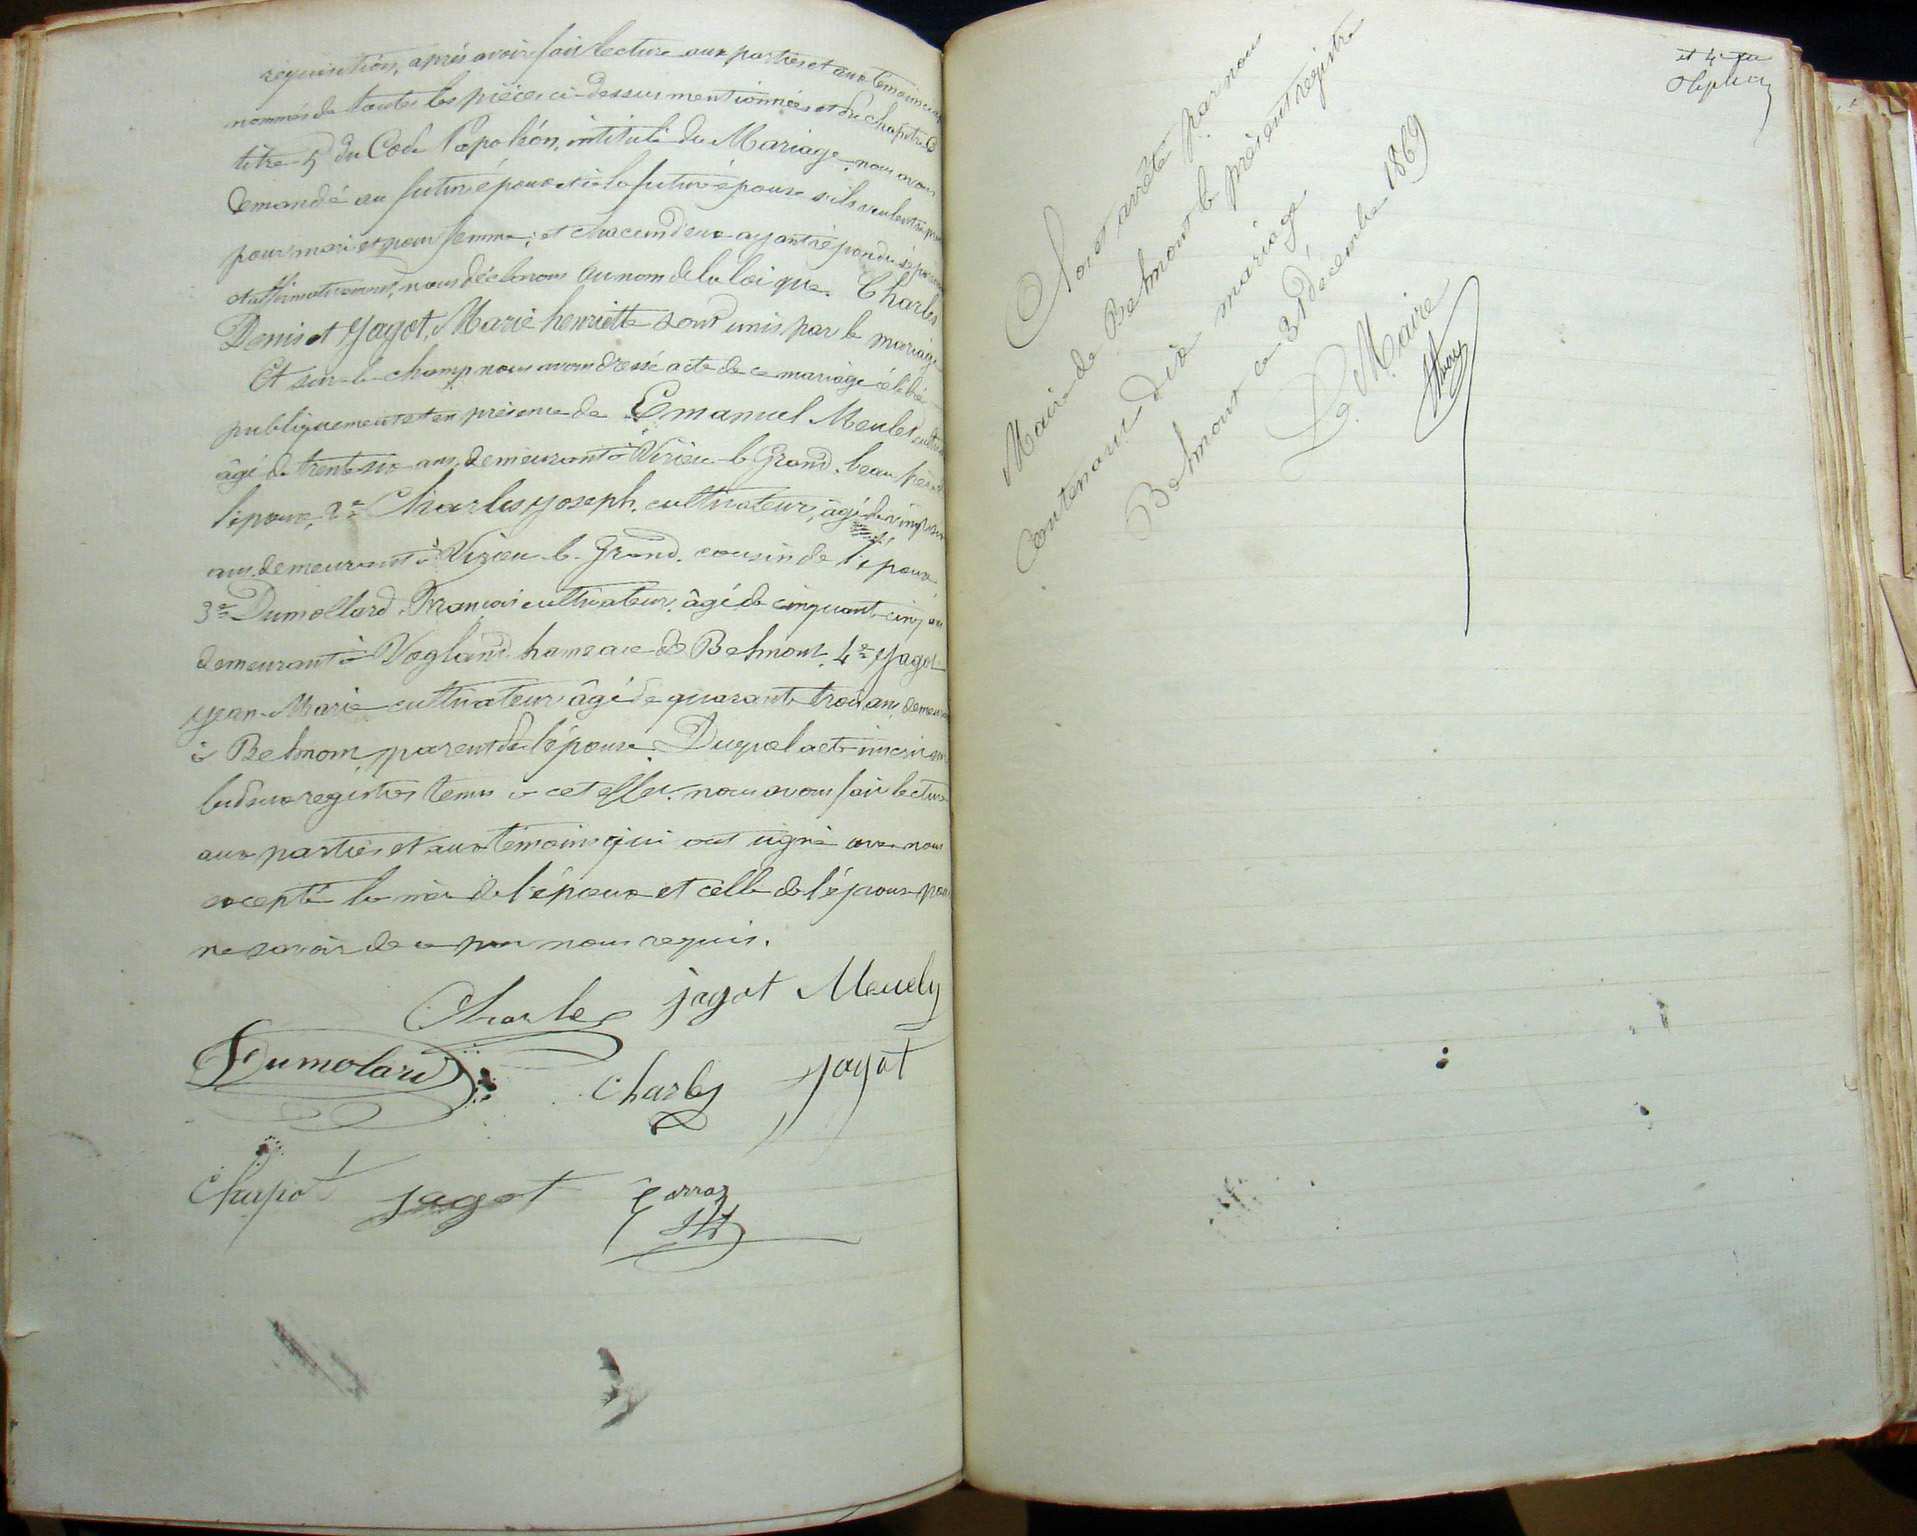 réquisition, après avoir fait lecture aux parties et aux témoins
nommés de toutes les pièces ci-dessus mentionnées et du chapitre 6
titre 5 du Code Napoléon, intitulé du Mariage, nous avons
demandé au futur époux et à la future épouse s'ils veulent se
pour mari et pour femme; et chacun d'eux ayant répondu
et affirmativement, nous déclarons au nom de la loi que Charles
Denis et Jagot, Marie henriette sont unis par le mariage
Et sur le champ nous avons dressé acte de ce mariage célébré
publiquement et en présence de Emanuel Meuley
âgé de trente six ans, demeurant à Virieu-le-Grand, beau père
l'époux, 2e Charles Joseph, cultivateur, âgé de
ans demeurant à Virieu-le-Grand, cousin de l'époux
3e Dumollard François cultivateur, âgé de cinquante cinq ans
demeurant à Vogland hameau de Belmont, 4e Jagot
Jean-Marie cultivateur âgé de quarante trois ans,
à Belmont, parent de l'épouse. Duquel acte inscrit
les deux registres tenus à cet effet, nous avons fait lecture
aux parties et aux témoins qui ont signé avec nous
excepté la mère de l'époux et celle de l'épouse pour
ne savoir de ce par nous requis.
Charles jagot Meuley
Dumolard Charles Jagot
Chapot jagot
Clos et arrêté par nous
Maire de Belmont le présent registre
Contenant dix mariage
Belmont ce 31 décembre 1869
Le Maire